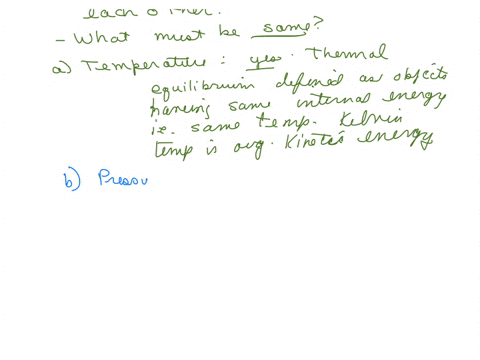 each other.
- What must be same?
a) Temperature: yes. Thermal
equilibrium defined as objects
having same internal energy
i.e. same temp. Kelvin
temp is avg. Kinetic energy
b) Pressu